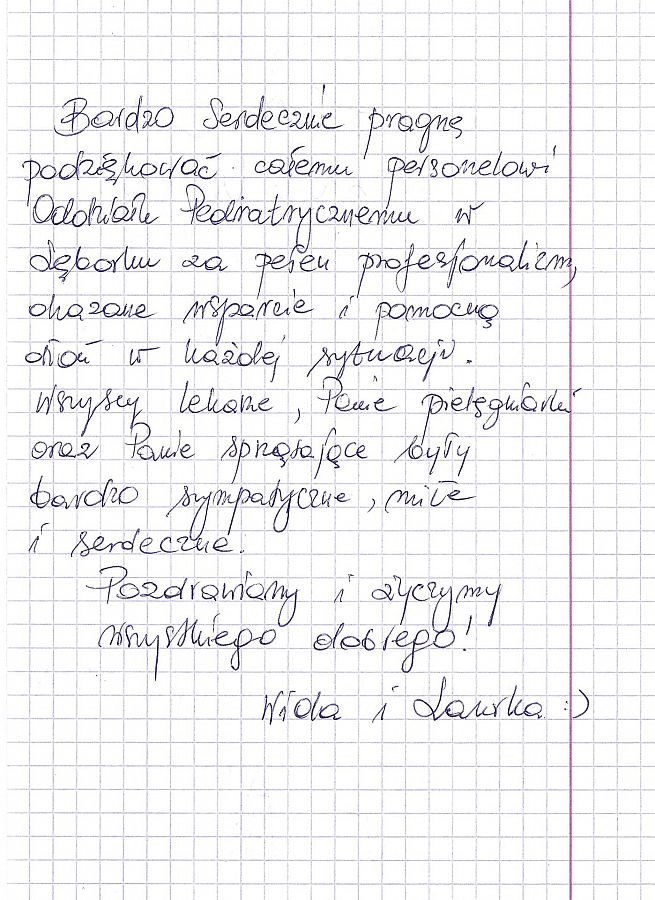 Bardzo serdecznie pragnę
podziękować całemu personelowi
Oddziału Pediatrycznemu w
Lęborku za pełen profesjonalizm,
okazane wsparcie i pomocną
dłoń w każdej sytuacji.
Wszyscy lekarze, Panie pielęgniarki
oraz Panie sprzątające były
bardzo sympatyczne, miłe
i serdeczne.
Pozdrawiamy i życzymy
wszystkiego dobrego!
i Laurka :)